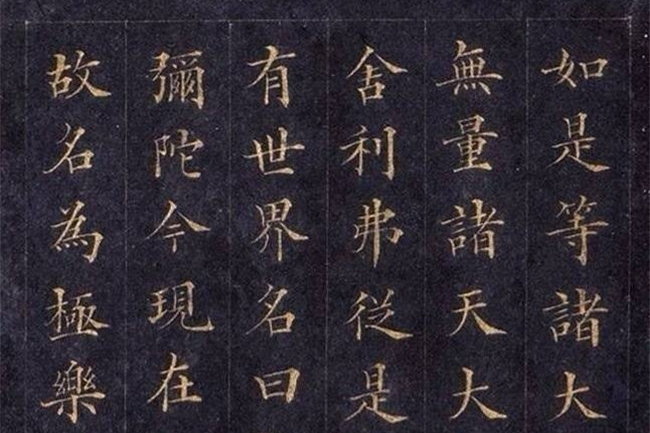 如是等諸大
無量諸天大
舍利弗從是
有世界名曰
彌陀今現在
故名為極樂